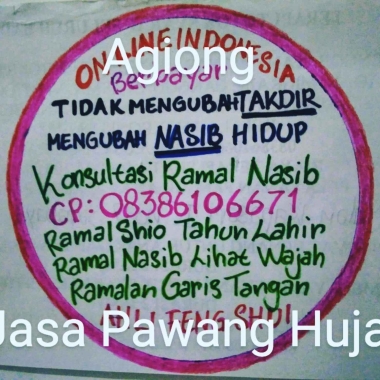 ON-LINE INDONESIA
Agiong
Berbayar
TIDAK MENGUBAH TAKDIR
MENGUBAH NASIB HIDUP
Konsultasi Ramal Nasib
CP: 083861066 71
Ramal Shio Tahun Lahir
Ramal Nasib Lihat Wajah
Ramalan Garis Tangan
AHLI FENG SHUI
Jasa Pawang Huja